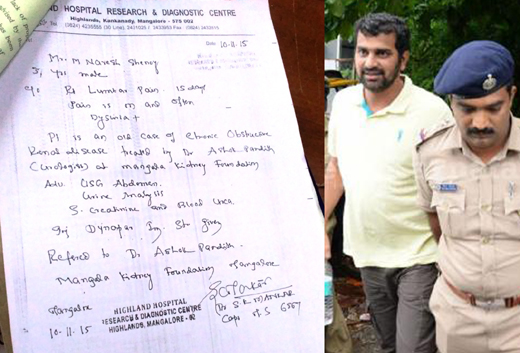 AND HOSPITAL RESEARCH & DIAGNOSTIC CENTRE
Highlands, Kankanady, Mangalore - 575 002
Date: 10.11.15
Mr. M Naresh Shenoy
yrs male
c/o Rt Lumbar Pain 15 days
Pain is on and often
Dysuria +
Pt is an old case of Chronic Obstructive
Renal disease treated by Dr Ashok Pandith
(Urologist) at Mangala Kidney Foundation
Adv. USG Abdomen
Urine Analysis
S. creatinine and Blood Urea.
Inj Dynapar Im St given
Refered to Dr Ashok Pandith.
Mangala Kidney Foundation Mangalore
Mangalore
10.11.15
HIGHLAND HOSPITAL
RESEARCH & DIAGNOSTIC CENTRE
HIGHLANDS, MANGALORE - 02
Dr S.R.